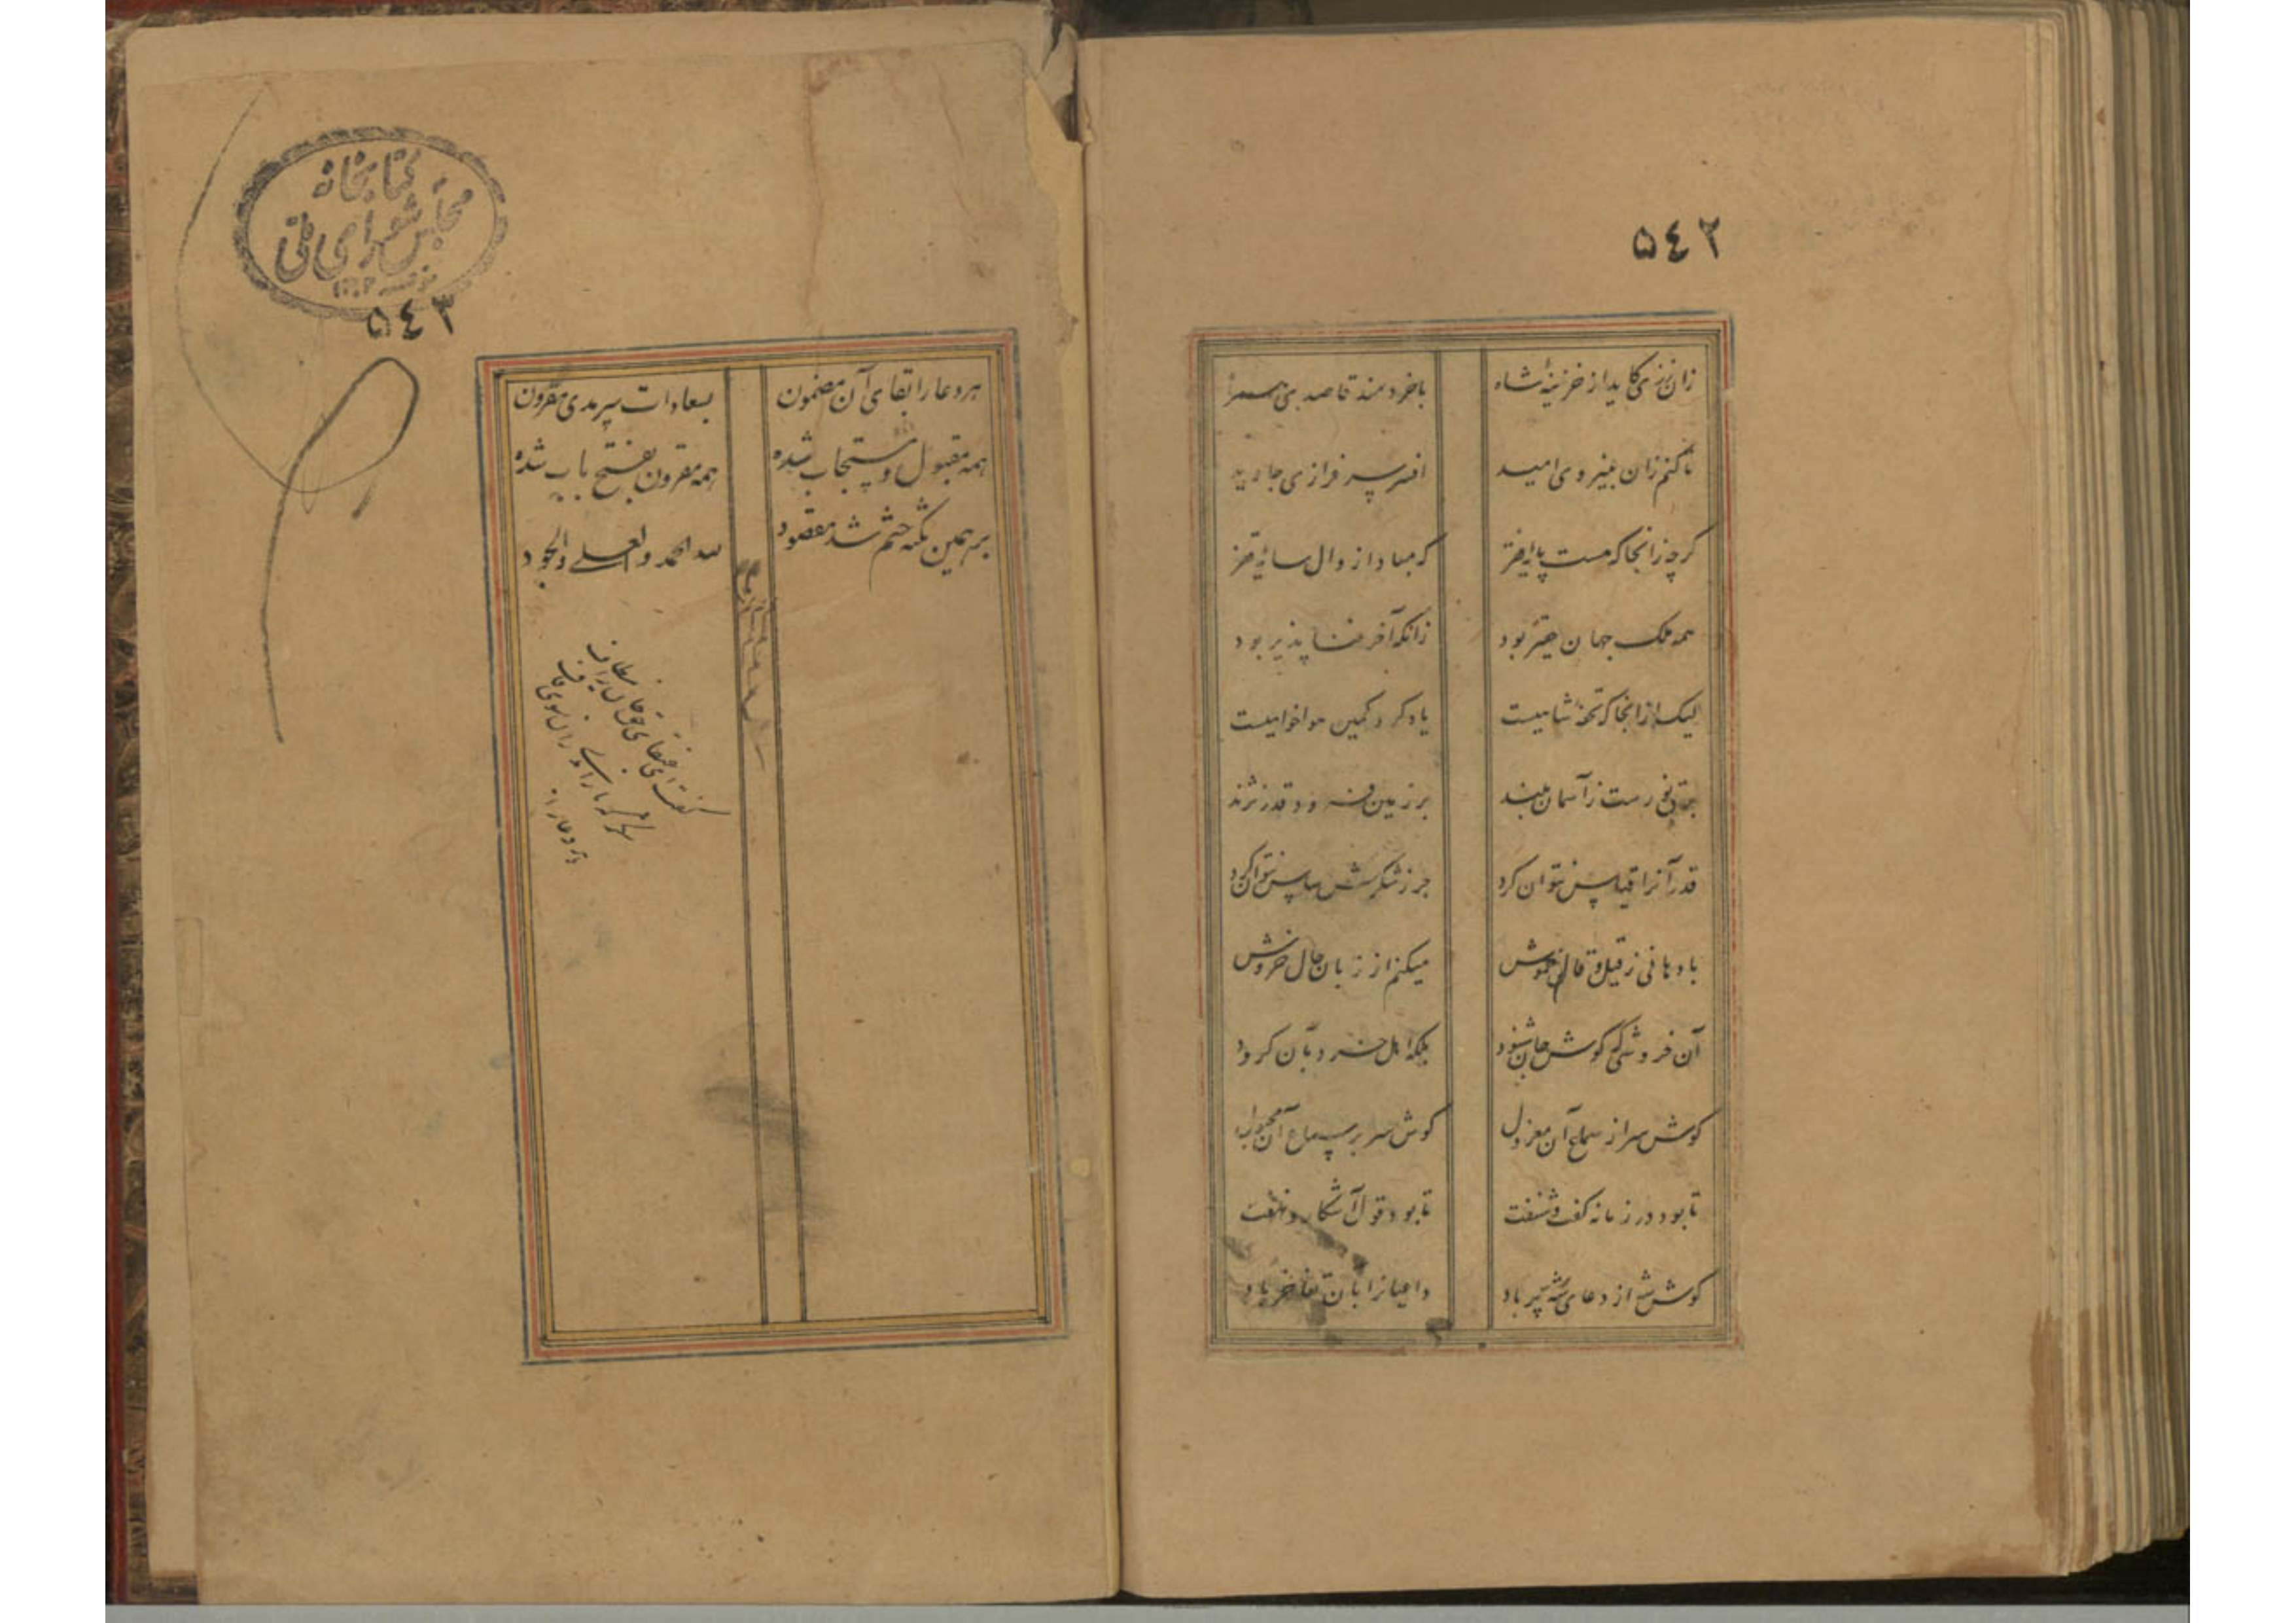 ٥٤٢
زان نوازی کاید از خزینهٔ شاه با خردمند قاصدی همراه
تا کنم زان به نیروی امید افسر سرفرازی جاوید
گرچه زانجا که هست پایهٔ فقر که مبادا زوال سایهٔ فقر
همه ملک جهان حقیر بود زانکه آخر فنا پذیر بود
لیک از انجا که تحفهٔ شاهیست یاد کرد کمین هواخواهیست
پرتو نورست ز آسمان بلند بر زمین فرود قدر نژند
قدر آنرا قیاس نتوان کرد جز ز شکرش سپاس نتوان کرد
با دهانی ز قیل و قال خموش میکنم از زبان حال خروش
آن خروشی که گوش جان شنود بلکه اهل خرد بآن گرود
گوش سر از سماع آن معزول گوش سر بر سماع آن مجبول
تا بود در زمانه گفت و شنفت تا بود قول آشکار و نهفت
گوش شه از دعای شه پر باد داعیانرا بآن تفاخر باد
کتابخانه
مجلس شورای ملی
٥٤٣
هر دعا را بقای آن مضمون بسعادات سرمدی مقرون
همه مقبول و مستجاب شده همه مقرون بفتح باب شده
بر همین نکته ختم شد مقصود لله الحمد والعلی والجود